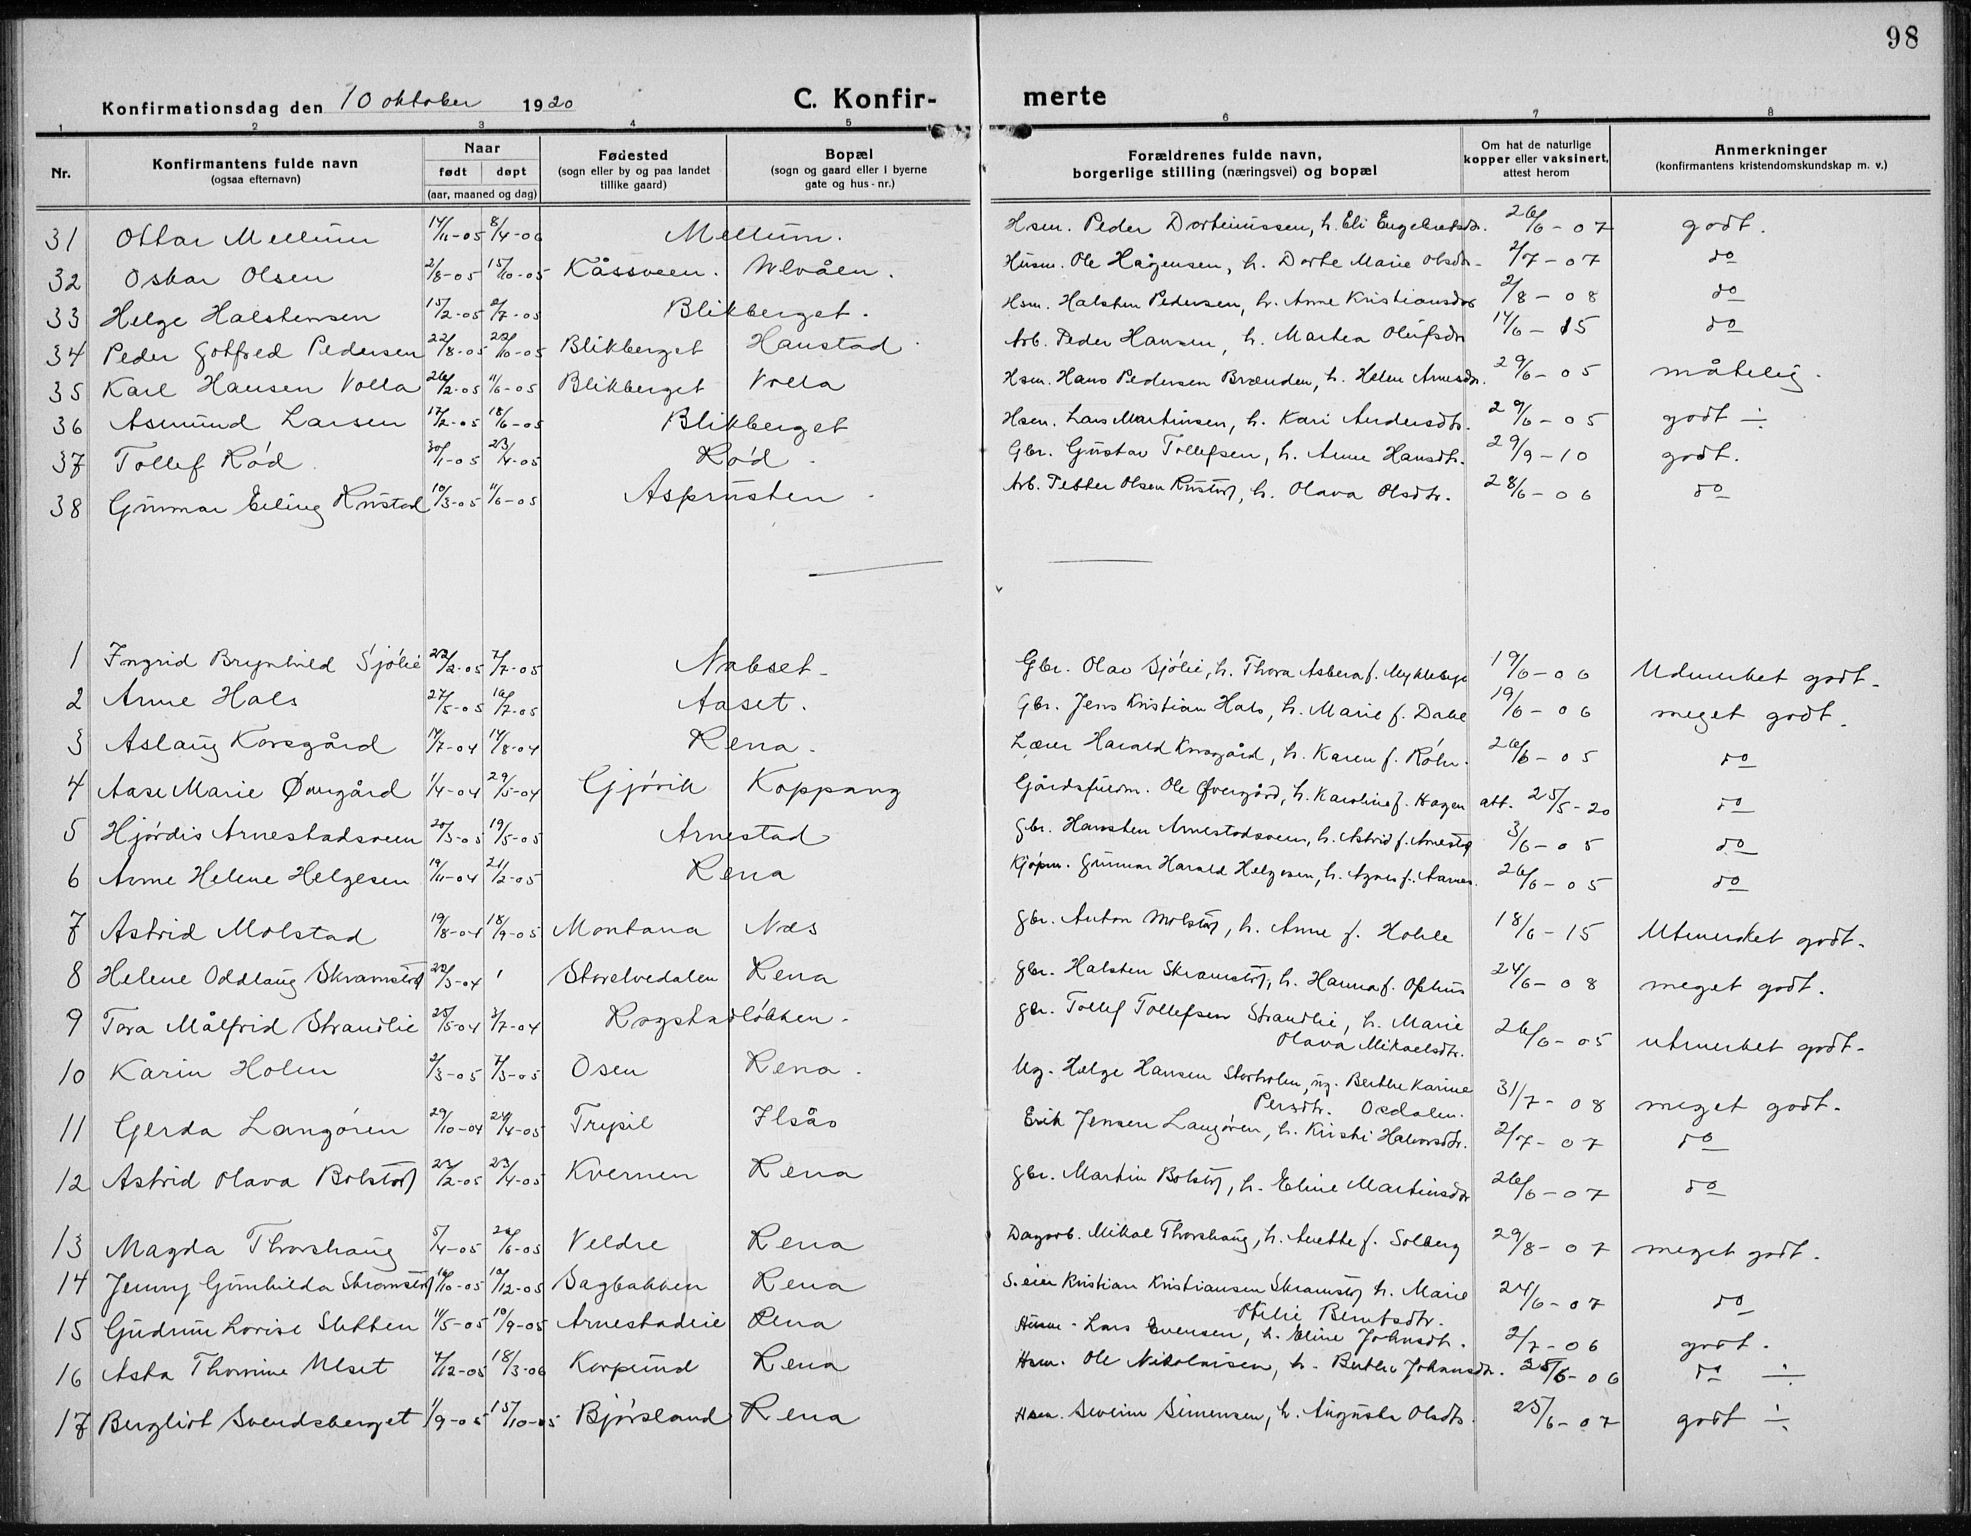 98
Konfirmationsdag den 10 oktober 1920 C. Konfir- merte
1 2 3 4 5 6 7 8
Nr. Konfirmantens fulde navn (ogsaa efternavn) Naar født døpt (aar, maaned og dag) Fødested (sogn eller by og paa landet tillike gaard) Bopæl (sogn og gaard eller i byerne gate og hus-nr.) Forældrenes fulde navn, borgerlige stilling (næringsvei) og bopæl Om hat de naturlige kopper eller vaksinert, attest herom Anmerkninger (konfirmantens kristendomskundskap m. v.)
31 Ottar Mellum 14/11-05 8/4-06 Mellum. Hsm. Peder Dortinussen, h. Eli Engebretsdr. 26/6-07 godt.
32 Oskar Olsen 2/8-05 15/10-05 Kåssveen. Ulvåen. Husm. Ole Hågensen, h. Dorte Marie Olsdr- 2/7-07 do
33 Helge Halstensen 15/2-05 2/7-05 Blikberget. Hsm. Halsten Pedersen, h. Anne Kristiansdr 2/8-08 do
34 Peder Gotfred Pedersen 22/8-05 22/10-05 Blikberget Haustad. Arb. Peder Hansen, h. Martea Olufsdr 14/6-15 do
35 Karl Hansen Volla 26/2-05 11/6-05 Blikberget Volla Hsm. Hans Pedersen Brænden, h. Helene Arnesdr. 29/6-05 måtelig.
36 Asmund Larsen 17/2-05 18/6-05 Blikberget Hsm. Lars Martinsen, h. Kari Andersdtr. 29/6-05 godt ÷
37 Tollef Rød 30/1-05 23/4-05 Rød. Gbr. Gustav Tollefsen, h. Anne Hansdtr. 29/9-10 godt.
38 Gunnar Erling Rustad 10/3-05 11/6-05 Asprusten. Arb. Petter Olsen Rustad, h. Olava Olsdtr. 28/6-06 do
1 Ingrid Brynhild Sjølie 23/2-05 7/7-05 Nabset- Gbr. Olav Sjølie, h. Thora Asbera f. Myklebye 19/6-06 Udmerket godt-
2 Anne Hals 27/5-05 16/7-05 Aaset. Gbr. Jens Kristian Hals, h. Marie f. Dahl 19/6-06 meget godt.
3 Aslaug Korsgård 14/7-04 14/8-04 Rena. Lærer Harald Korsgård, h. Karen f. Röhr. 26/6-05 do
4 Aase Marie Øvergård 1/4-04 29/5-04 Gjøvik Koppang Gårdsfuldm. Ole Øvergård, h. Karoline f. Hagen att. 25/5-20 do
5 Hjørdis Arnestadsveen 20/3-05 19/5-05 Arnestad Gbr. Hansten Arnestadsveen, h. Astrid f. Arnestad 3/6-05 do
6 Anne Helene Helgesen 19/11-04 21/2-05 Rena Kjøpm. Gunnar Harald Helgesen, h. Agnes f. Aarnes. 26/6-05 do
7 Astrid Molstad 19/8-04 18/9-05 Montana Næs gbr. Anton Molstad, h. Anne f. Hohle 18/6-15 Utmerket godt.
8 Helene Oddlaug Skramstad 22/3-04 Storelvedalen Rena gbr. Halsten Skramstad, h. Hanna f. Ophus 24/6-08 meget godt.
9 Tora Målfrid Strandlie 25/5-04 3/7-04 Rogstadløkken- gbr. Tollef Tollefsen Strandlie, h. Marie
Olava Mikaelsdtr. 26/6-05 utmerket godt-
10 Karin Holen 2/3-05 7/3-05 Osen Rena. Ug. Helge Hansen Storholen, ug. Berthe Karine
Persdtr. Osdalen. 31/7-08 meget godt.
11 Gerda Langøren 29/10-04 24/4-05 Trysil Ilsås Erik Jensen Langøren, h. Kirsti Halvorsdtr. 2/7-07 do
12 Astrid Olava Bolstad 23/2-05 23/4-05 Kvernen Rena gbr. Martin Bolstad, h. Eline Martinsdr 26/6-07 do
13 Magda Thorshaug 5/4-05 26/6-05 Veldre Rena Dagarb. Mikal Thorshaug, h. Anette f. Solberg 29/8-07 meget godt.
14 Jenny Gunhilda Skramstad 16/10-05 10/12-05 Sagbakken Rena S.eier Kristian Kristiansen Skramstad h. Marie
Otelie Berntsdtr. 24/6-07 do
15 Gudrun Lovise Sletten 11/5-05 10/9-05 Arnestadlie Rena Husm- Lars Evensen, h. Eline Johnsdtr. 2/7-06 godt.
16 Asta Thomine Ulset 7/12-05 18/3-06 Korpund Rena Hsm. Ole Nikolaisen, h. Berthe Johansdtr. 25/6-06 do ÷
17 Bergliot Svendsberget 1/9-05 15/10-05 Bjørsland Rena Hsm. Severin Simensen, h. Augusta Olsdtr. 25/6-07 godt ÷